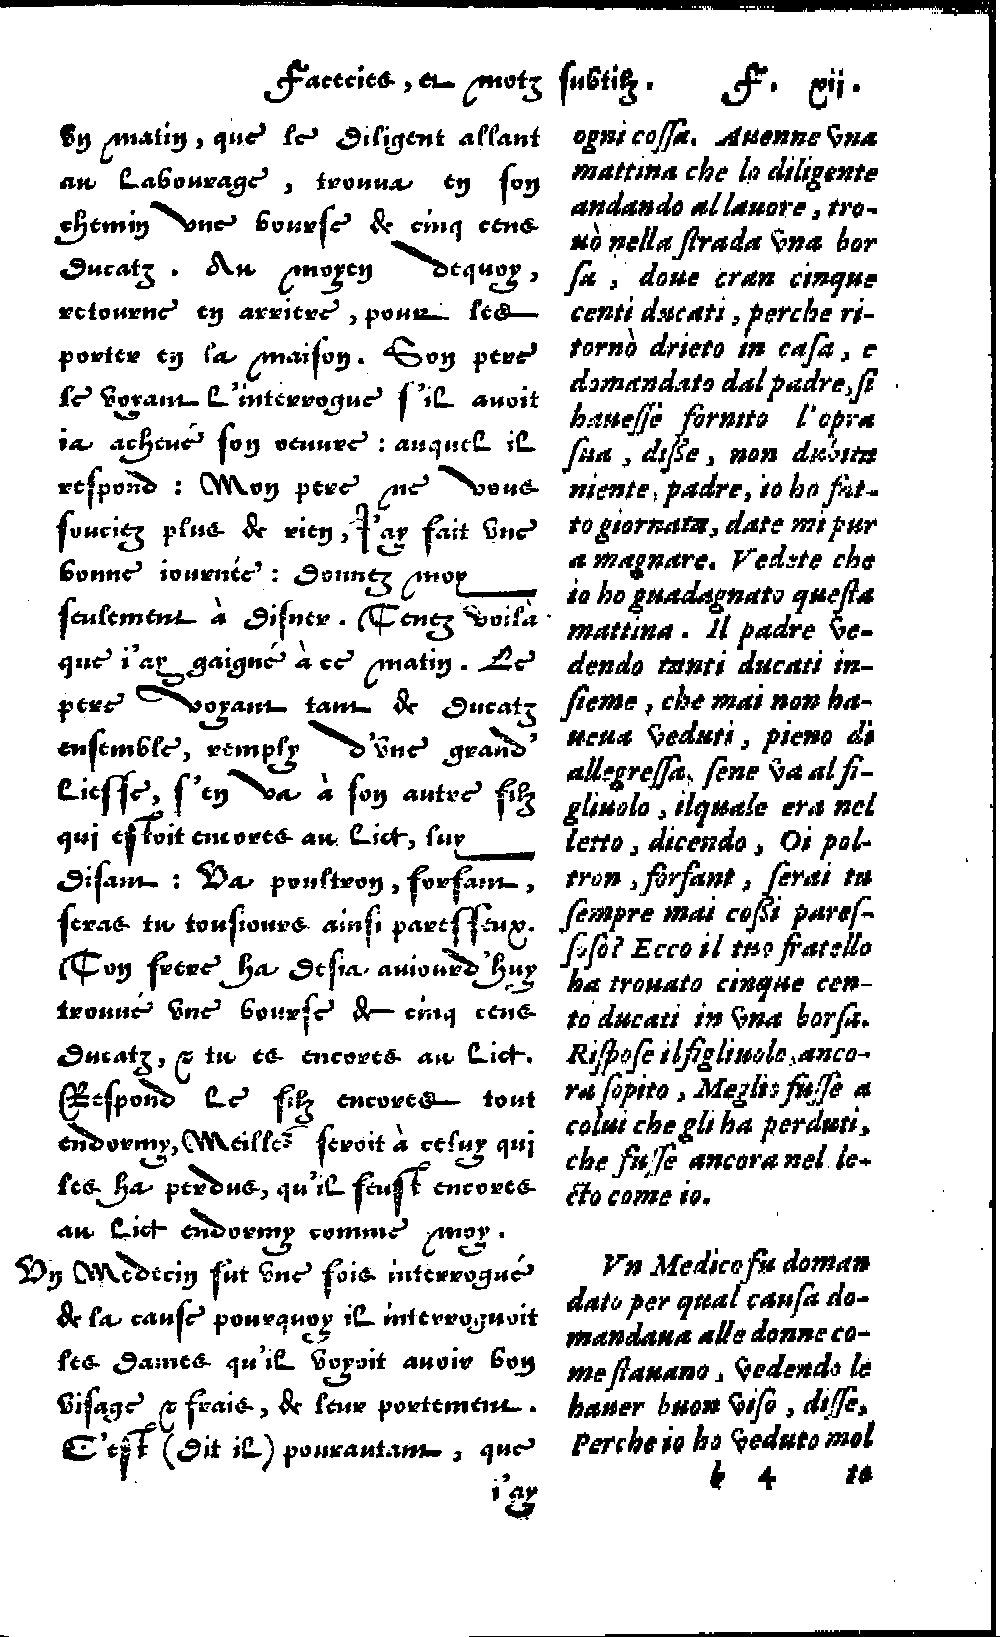 Facecies, et motz subtilz. F. xij.
vn matin, que le diligent allant
au labourage, trouua en son
chemin vne bourse de cinq cens
ducatz. Au moyen dequoy,
retourne en arriere, pour les
porter en la maison. Son pere
le voyant l'interrogue s'il auoit
ia acheué son oeuure: auquel il
respond: Mon pere ne vous
souciez plus de rien, i'ay fait vne
bonne iournée: donnez moy
seulement à disner. Tenez voilà
que i'ay gaigné à ce matin. Le
pere voyant tant de ducatz
ensemble, remply d'vne grand'
liesse, s'en va à son autre filz
qui estoit encores au lict, luy
disant: Va poultron, forfant,
seras tu tousiours ainsi paresseux.
Ton frere ha desia auiourd'huy
trouué vne bourse de cinq cens
ducatz, & tu es encores au lict.
Respond le filz encores tout
endormy, Meille~ seroit à celuy qui
les ha perdus, qu'il feust encores
au lict endormy comme moy.
Vn Medecin fut vne fois interrogué
de la cause pourquoy il interroguoit
les dames qu'il voyoit auoir bon
visage & frais, de leur portement.
C'est (dit il) pourautant, que
i'ay
ogni cossa. Auenne vna
mattina che lo diligente
andando al lauore, tro-
uò nella strada vna bor
sa, doue eran cinque
centi ducati, perche ri-
tornò drieto in casa, e
domandato dal padre, si
hauesse fornito l'opra
sua, disse, non dubita
niente, padre, io ho fat-
to giornata, date mi pur
a magnare. Vedete che
io ho guadagnato questa
mattina. Il padre ve-
dendo tanti ducati in-
sieme, che mai non ha-
ueua veduti, pieno di
allegressa, sene va al fi-
gliuolo, ilquale era nel
letto, dicendo, Oi pol-
tron, forfant, serai tu
sempre mai cossi pares-
soso? Ecco il tuo fratello
ha trouato cinque cen-
to ducati in vna borsa.
Rispose il figliuolo, anco-
ra sopito, Meglio fusse a
colui che gli ha perduti,
che fusse ancora nel le-
cto come io.
Vn Medico fu doman
dato per qual causa do-
mandaua alle donne co-
me stauano, vedendo le
hauer buon viso, disse,
Perche io ho veduto mol
b 4 te